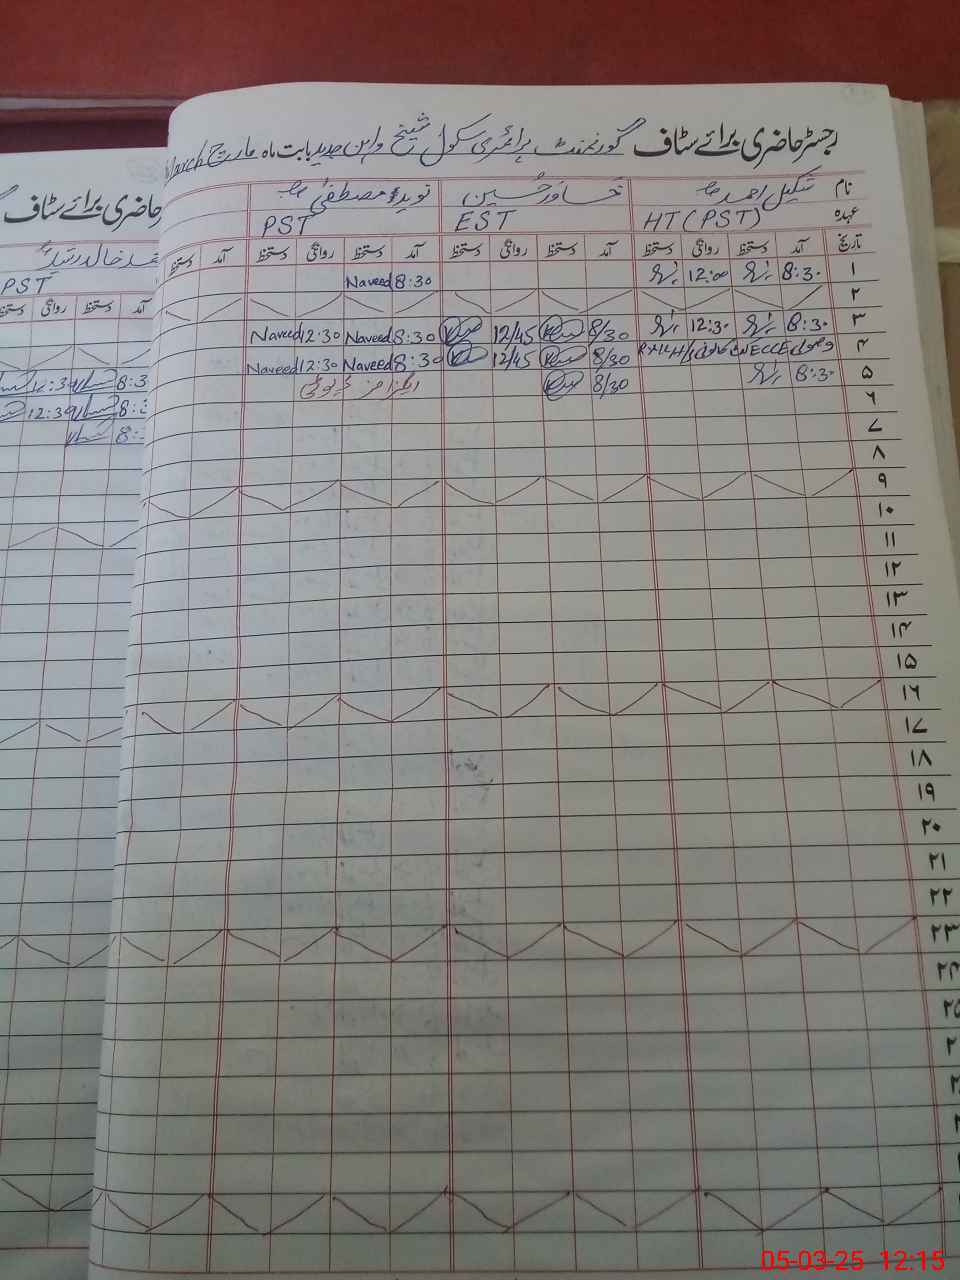 رجسٹر حاضری برائے سٹاف گورنمنٹ پرائمری سکول شیخ واہن جدید بابت ماہ مارچ March
نام شکیل احمد خاور حسین نوید مصطفیٰ
عہدہ HT (PST) EST PST
تاریخ آمد دستخط روانگی دستخط آمد دستخط روانگی دستخط آمد دستخط روانگی دستخط آمد دستخط
۱ 8:30 12:00 8:30 Naveed
۲
۳ 8:30 12:30 8/30 12/45 8:30 Naveed 12:30 Naveed
۴ ECCE 8/30 12/45 8:30 Naveed 12:30 Naveed
۵ 8:30 8/30 ڈیوٹی
۶
۷
۸
۹
۱۰
۱۱
۱۲
۱۳
۱۴
۱۵
۱۶
۱۷
۱۸
۱۹
۲۰
۲۱
۲۲
۲۳
۲۴
۲۵
حاضری برائے سٹاف
خالد رشید
PST
آمد دستخط روانگی دستخط
12:30
12:30
05-03-25 12:15